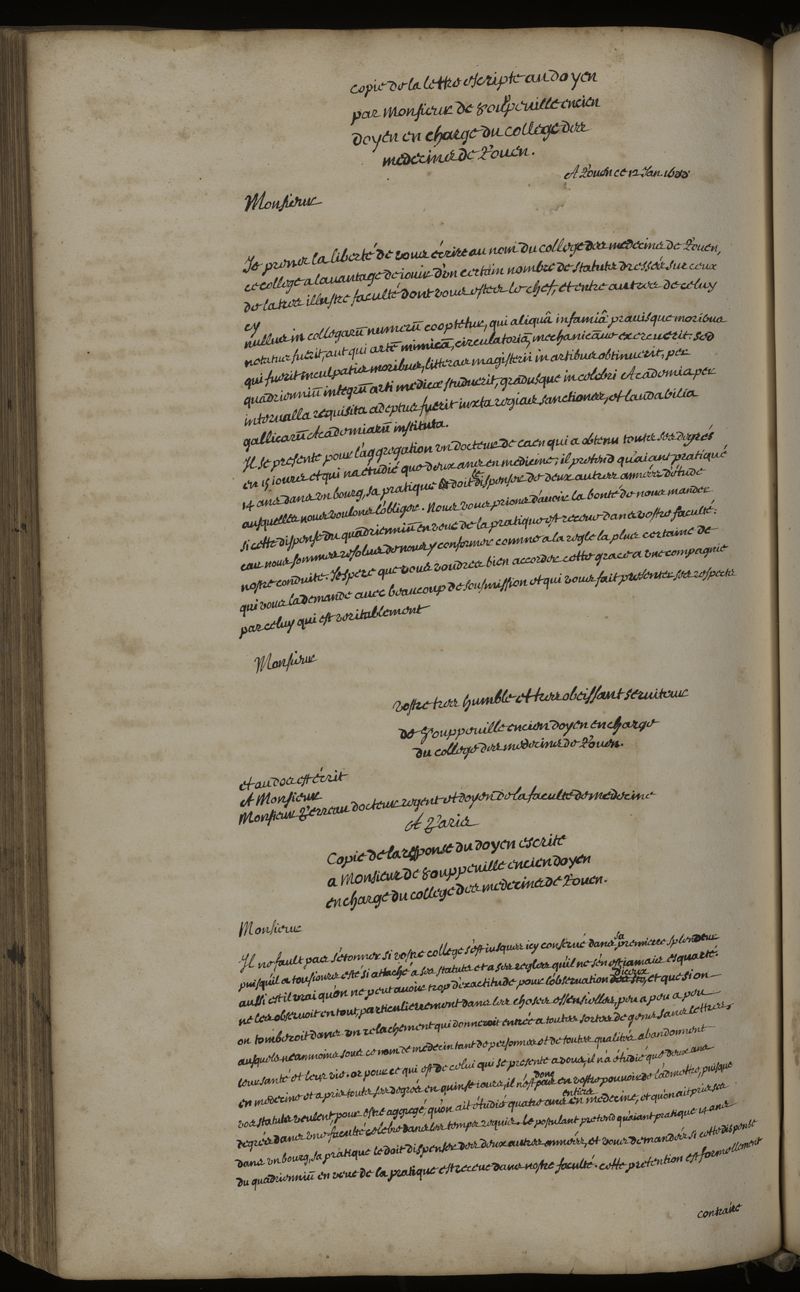 copie de la lettre escripte au doyen
par Monsieur de Houppeuille encien
doyen en charge du college des
medecins de Rouen.
A Rouen ce 12 Jan.
Monsieur
Je prens la liberté de vous écrire au nom du college des medecins de Rouen,
ce college a l'auantage de iouir d'vn certain nombre de statuts dressés sur ceux
de la tres illustre faculté dont vous estes le chef, et entre autres de celuy
cy
nullus in collegarū numerū cooptetur, qui aliquâ infamiâ prauisque moribus
notatus fuerit, aut qui artē mimicā, circulatoriā, mechanicāue exercuerit. sed
qui fuerit inculpatis moribus, litteras magisterii in artibus obtinuerit, per
quadrienniū integrū arti medicæ studuerit, gradusque in celebri Academia per
interualla requisita adeptus fuerit iuxta regias sanctiones, et laudabilia
gallicarū Academiarū instituta.
Il se presente pour l'aggregation vn docteur de caen qui a obtenu touts ses degrés
en 15 iours et qui n'a étudié que deux ans en medecine; il pretend qu'aiant pratiqué
14 ans dans vn bourg, sa pratique le doit dispenser de deux autres années d'étude
ausquelles nous voulons l'obliger. Nous vous prions d'auoir la bonté de nous mander
si cette dispense du quadrienniū en veue de la pratique est receue dans vostre faculté:
car nous sommes resolus de nous y conformer comme a la regle la plus certaine de
nostre conduite. J'espere que vous voudrez bien accorder cette grace a vne compagnie
qui vous la demande auec beaucoup de soumission et qui vous fait presenter ses respects
par celuy qui est veritablement
Monsieur
vostre tres humble et tres obeissant seruiteur
de Houppeuille encien doyen en charge
du college des medecins de Rouen.
et au dos est écrit
A Monsieur
Monsieur Perreau docteur regent et doyen de la faculté de medecine
A Paris
Copie de la reponse du doyen escrite
a Monsieur de Houppeuille encien doyen
en charge du college des medecins de Rouen.
Monsieur
Il ne fault pas s'étonner si vostre college s'est iusques icy conserué dans sa premiere splendeur
puisqu'il a tousiours esté si attaché a ses statuts et a ses regles qu'il ne s'en est iamais esquarté.
aussi est il vrai qu'on ne peut auoir trop d'exactitude pour l'obseruation et que si on
ne les obseruoit en tout, particulierement dans les choses essensielles, peu a peu a peu
on tomberoit dans vn relachement qui donneroit entrée a toutes sortes de gens sans lettres,
ausquels neanmoins sous ce nom de medecin tant de personnes et de toutes qualités abandonnent
leur santé et leur vie. or pour ce qui est de celui qui se presente a vous, il n'a étudié que deux ans
en medecine et a pris touts ses degrés en quinse iours, il n'est donc pas en vostre pouuoir de l'admettre, puisque
vos statuts veulent pour estre aggregé, qu'on ait étudié quatre ans entiers en medecine, et qu'on ait pris ses
degrés dans vne faculté celebre dans les temps requis. le postulant pretend qu'aiant pratiqué 14 ans
dans vn bourg, sa pratique le doit dispenser des deux autres années, et vous demandés si cette dispense
du quadrienniū en veue de la pratique est receue dans nostre faculté. cette pretention est formellement
contraire